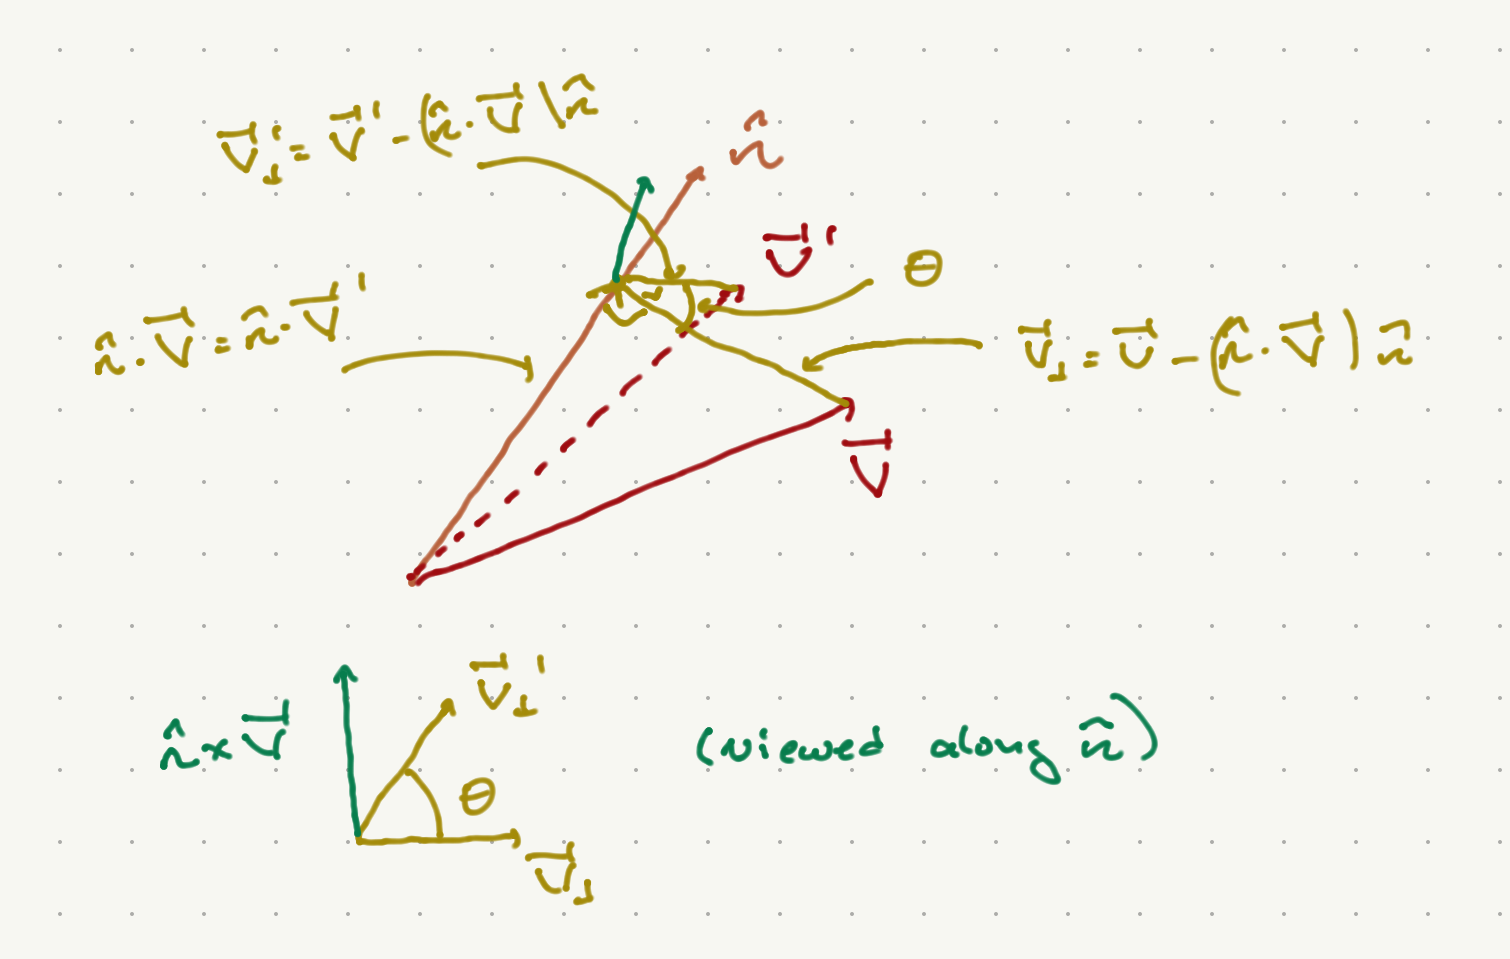 v⃗⊥' = v⃗' - (n̂ · v⃗) n̂
n̂
v⃗'
θ
n̂ · v⃗ = n̂ · v⃗'
v⃗⊥ = v⃗ - (n̂ · v⃗) n̂
v⃗
v⃗⊥'
n̂ × v⃗
(viewed along n̂)
θ
v⃗⊥